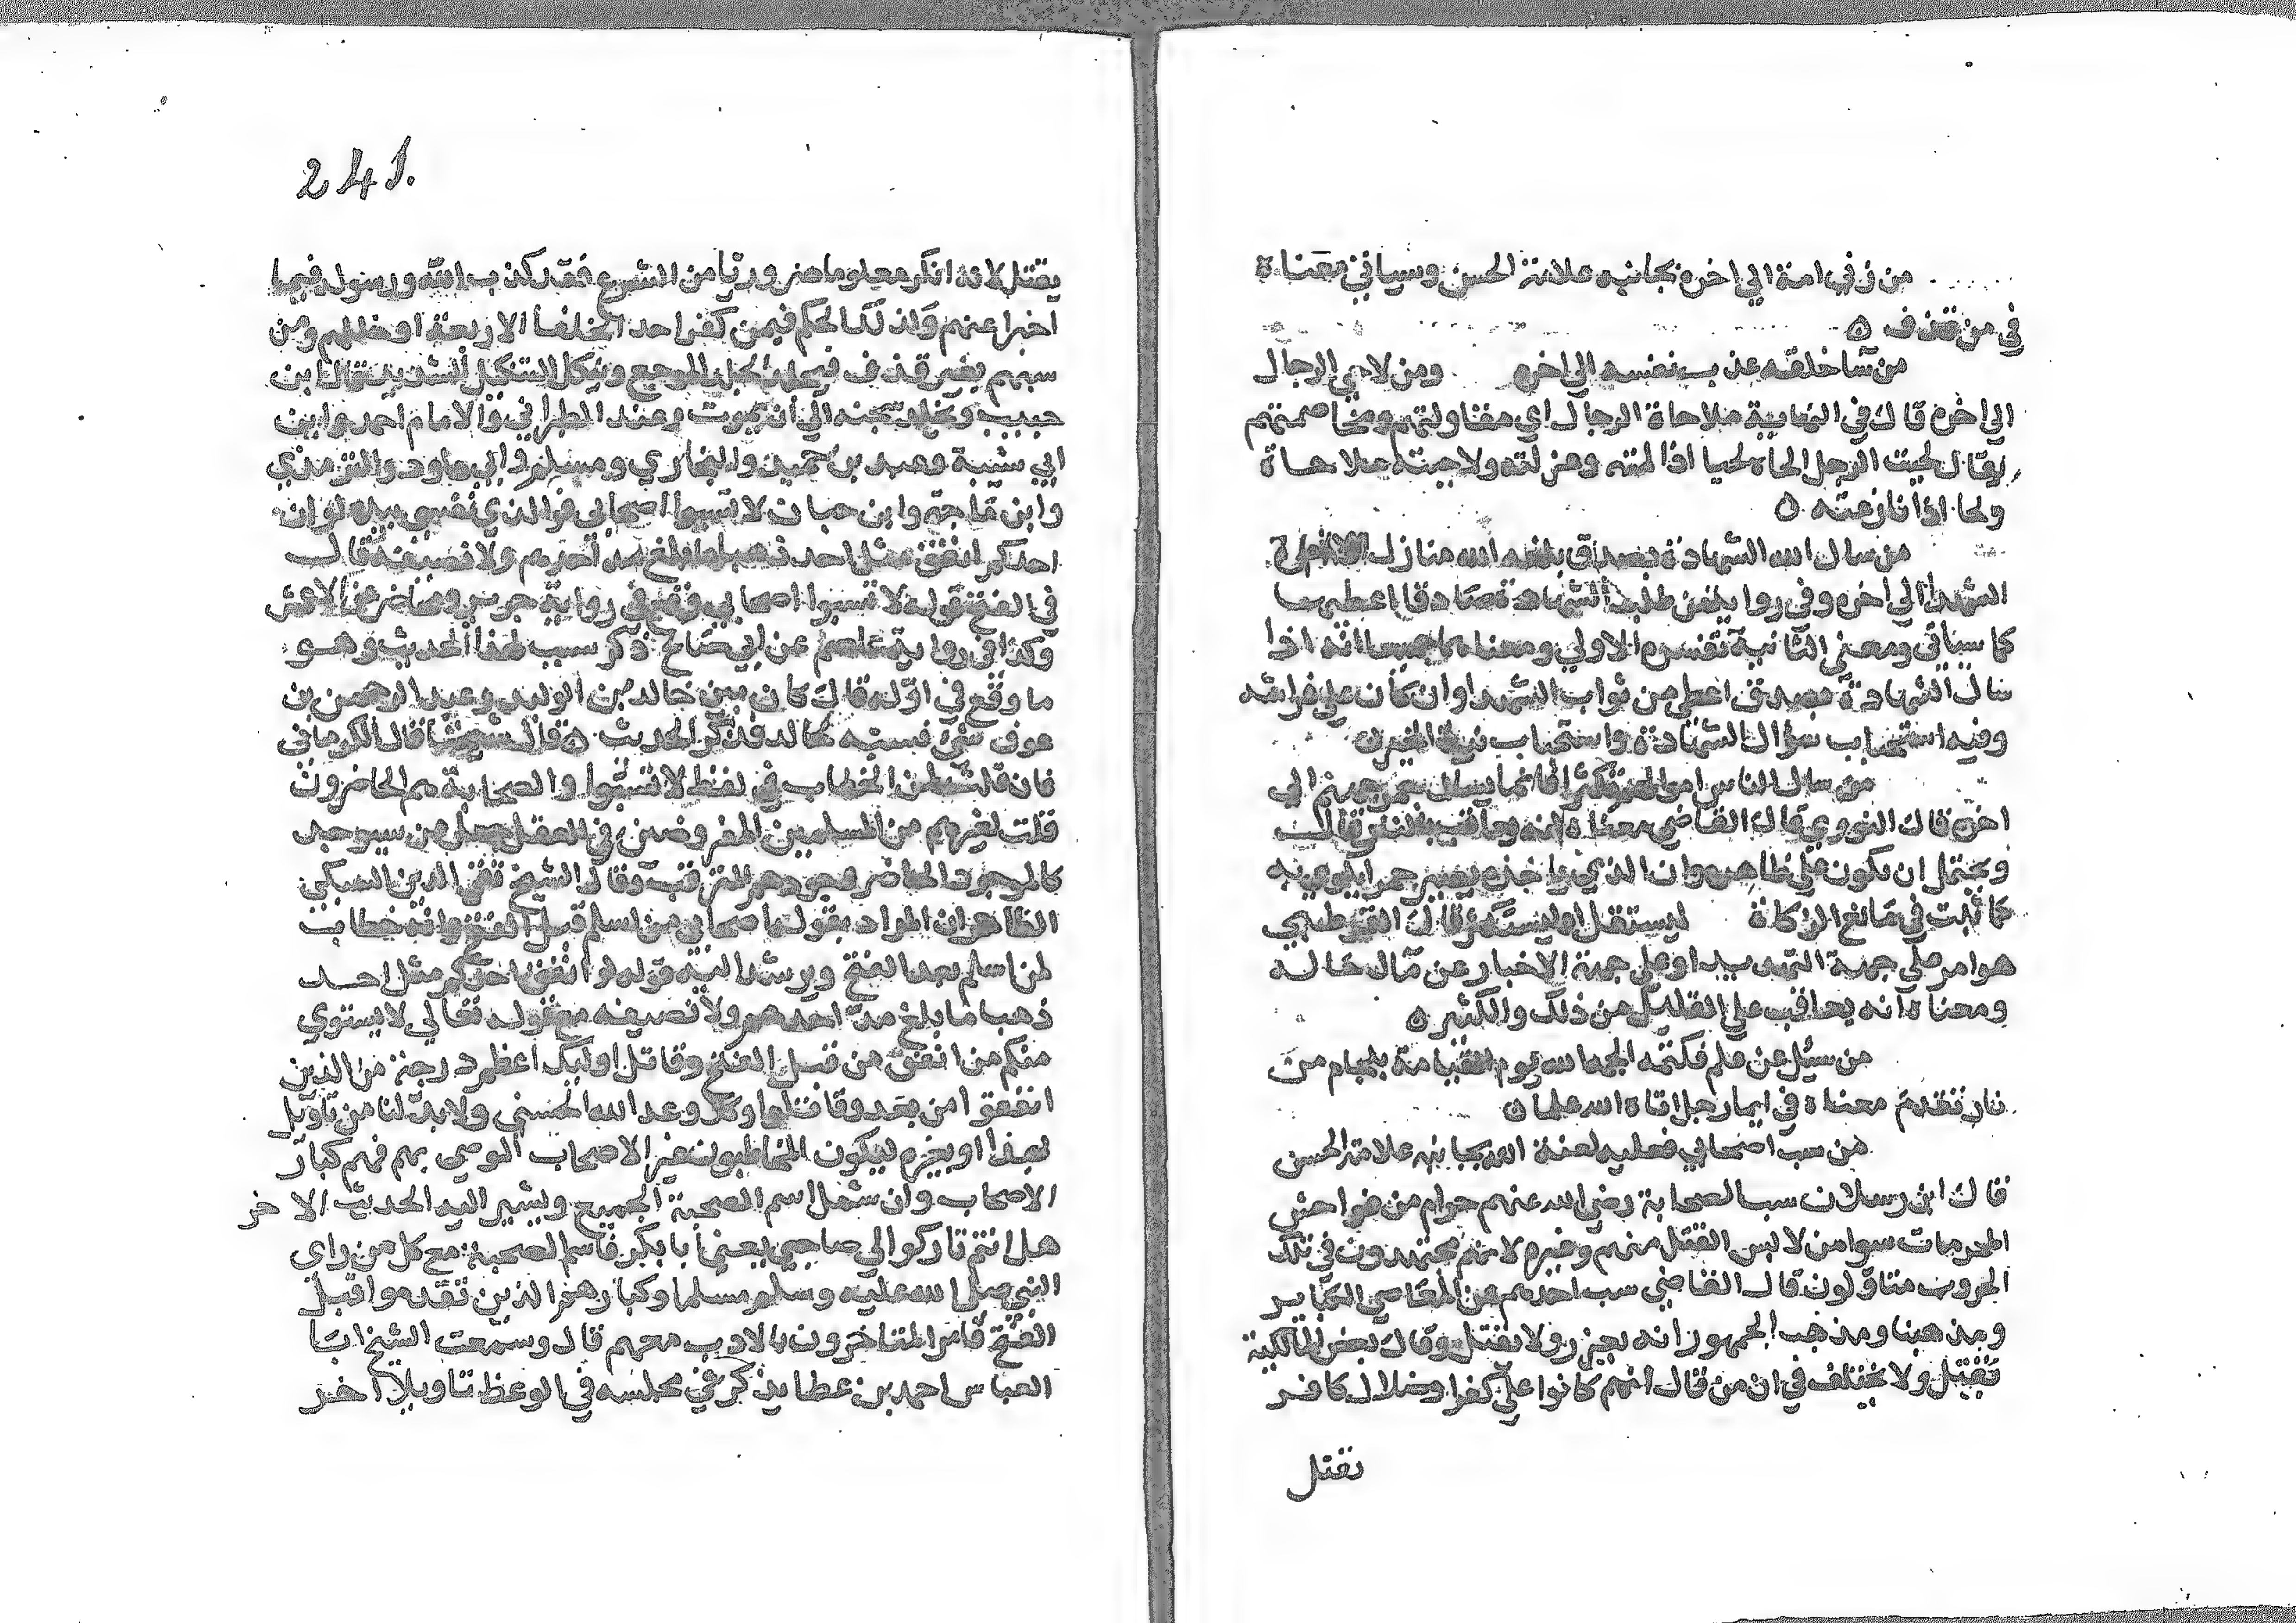 من زني امة الي اخره بجانبه علامة الحسن وسياتي معناه
في من قذف ه
من ساخلقه عذب نفسه الي اخره ومن لاحي الرجال
الي اخره قال في النهاية ملاحاة الرجال اي مقاولتهم ومخاصمتهم
يقال لحيت الرجل الحاه لحيا اذا لمته وعزلته ولاحيته ملاحاة
ولحا اذا نازعته ه
من سال الله الشهادة بصدق بلغه الله منازل
الشهدا الي اخره وفي رواية من طلب الشهادة صادقا اعطيها
كما سياتي ومعني الثانية تفسره الاولي ومعناهما جميعا انه اذا
سال الشهادة بصدق اعطي من ثواب الشهدا وان كان علي فراشه
وفيه استحباب سؤال الشهادة واستحباب نية الخير ه
من سال الناس اموالهم تكثرا فانما يسال جمر جهنم الي
اخره قال النووي قال القاضي معناه انه يعاقب بالنار قال
ويحتمل ان يكون علي ظاهره وان الذي ياخذه يصير جمرا يكوي به
كما ثبت في مانع الزكاة ليستقل او ليستكثر قال القرطبي
هو امر علي جهة التهديد او علي جهة الاخبار عن مآل حاله
ومعناه انه يعاقب علي القليل من ذلك والكثير ه
من سيل عن علم فكتمه الجمه الله يوم القيامة بلجام من
نار تقدم معناه في ايما رجل اتاه الله علما ه
من سب اصحابي فعليه لعنة الله بجانبه علامة الحسن
قال ابن رسلان سب الصحابة رضي الله عنهم حرام من فواحش
المحرمات سوا من لابس القتل منهم وغيره لانهم مجتهدون في تلك
الحروب متاولون قال القاضي سب احدهم من المعاصي الكباير
ومذهبنا ومذهب الجمهور انه يعزر ولا يقتل وقال بعض المالكية
يقتل ولا يختلف في ان من قال انهم كانوا علي كفر او ضلال كافر
يقتل
241.
يقتل لانه انكر معلوما ضروريا من الشرع فقد كذب الله ورسوله فيما
اخبرا عنهم وكذلك الحكم فيمن كفر احد الخلفا الاربعة او ضللهم ومن
سبهم بغير قذف فيجلد الجلد الموجع وينكل التنكيل الشديد قال ابن
حبيب ويخلد سجنه الي ان يموت وعند الطبراني والامام احمد وابن
ابي شيبة وعبد بن حميد والبخاري ومسلم وابي داود والترمذي
وابن ماجة وابن حبان لا تسبوا اصحابي فوالذي نفسي بيده لو ان
احدكم انفق مثل احد ذهبا ما بلغ مد احدهم ولا نصيفه قال
في الفتح قوله لا تسبوا اصحابي وقع في رواية جرير ومحاضر عن الاعمش
وكذا في رواية عاصم عن ابي صالح ذكر سبب لهذا الحديث وهو
ما وقع في اوله قال كان بين خالد بن الوليد وعبد الرحمن بن
عوف شي فسبه خالد فذكر الحديث ه قال شيخنا قال الكرماني
فان قلت لمن الخطاب في لفظ لا تسبوا والصحابة هم الحاضرون
قلت لغيرهم من المسلمين المفروضين في العقل جعل من سيوجد
كالموجود الحاضر وجودهم المترقب وقال الشيخ تقي الدين السبكي
الظاهر ان المراد بقوله اصحابي من اسلم قبل الفتح وانه خطاب
لمن اسلم بعد الفتح ويرشد اليه قوله لو انفق احدكم مثل احد
ذهبا ما بلغ مد احدهم ولا نصيفه مع قوله تعالي لا يستوي
منكم من انفق من قبل الفتح وقاتل اوليك اعظم درجة من الذين
انفقوا من بعد وقاتلوا وكلا وعد الله الحسني ولا بد لنا من تاويل
بهذا او بغيره ليكون المخاطبون غير الاصحاب الموصي بهم فهم كبار
الاصحاب وان شمل اسم الصحبة الجميع ويشير اليه الحديث الاخر
هل انتم تاركوا لي صاحبي يعني ابا بكر فاسم الصحبة مع كل من راي
النبي صلي الله عليه وسلم مسلما وكبارهم الذين تقدموا قبل
الفتح فامر المتاخرون بالادب معهم قال وسمعت الشيخ ابا
العباس احمد بن عطا يذكر في مجلسه في الوعظ تاويلا اخر